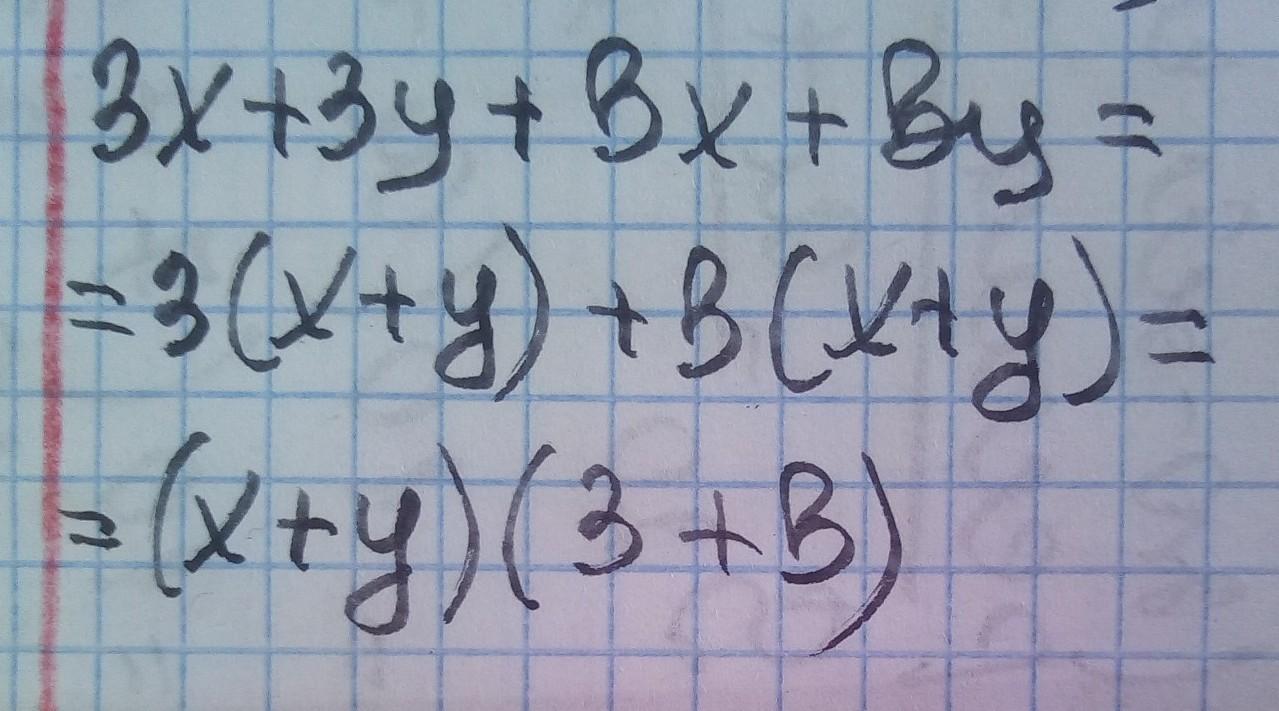 3x+3y+Bx+By=
=3(x+y)+B(x+y)=
=(x+y)(3+B)